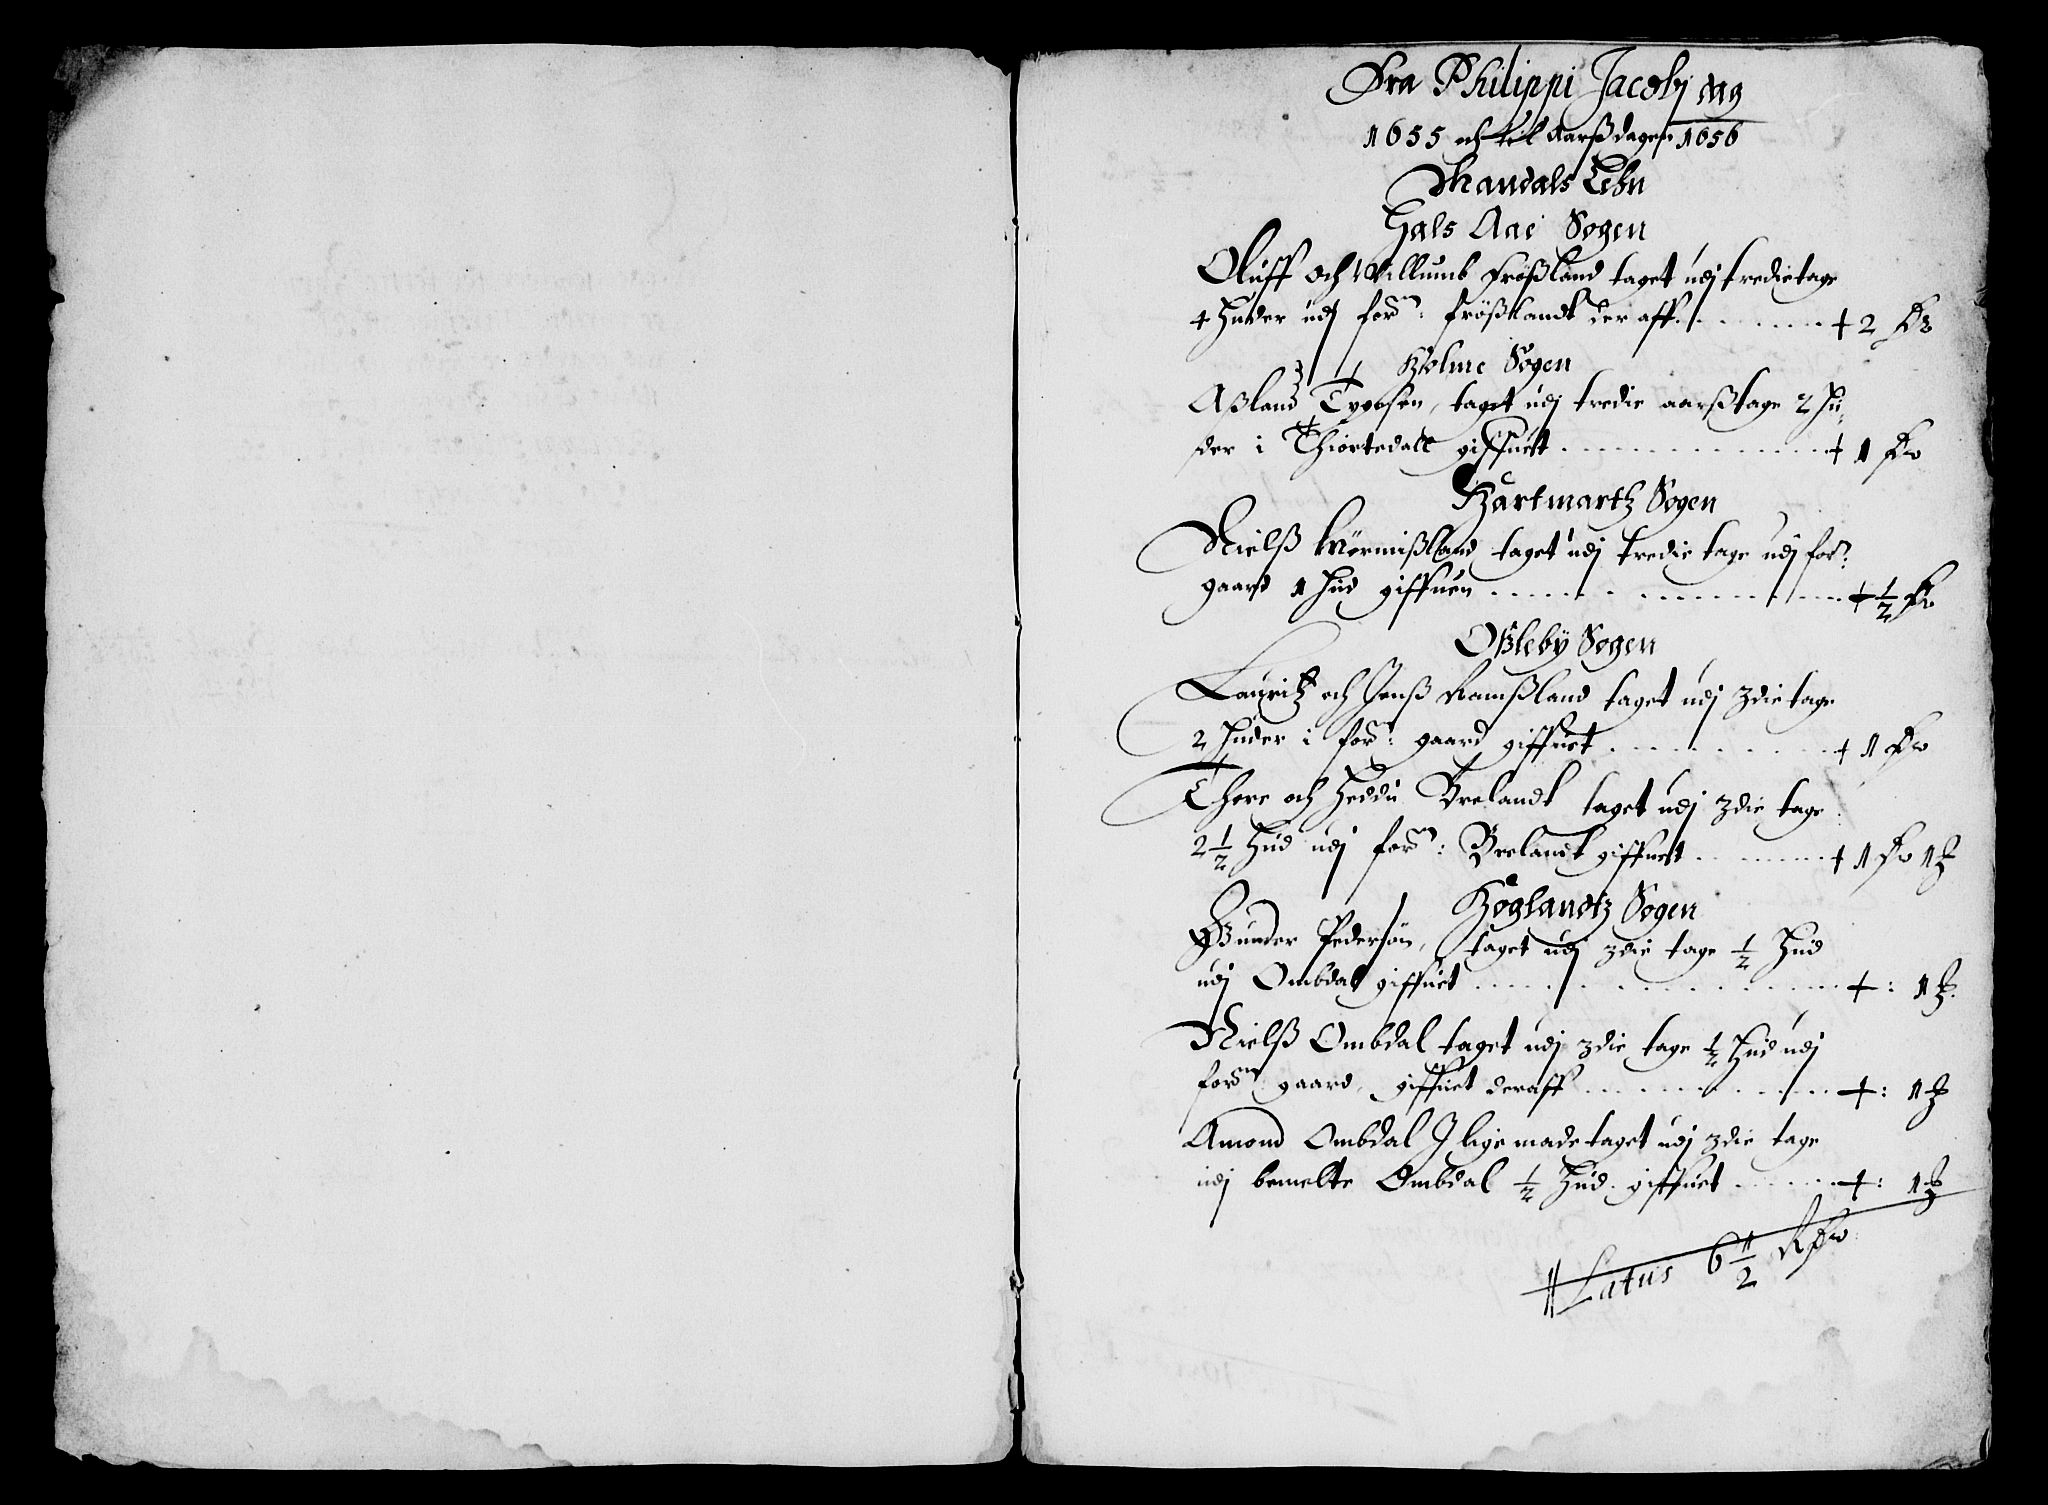 Fra Philippi Jacobj dag
1655 och til Aarßdagen 1656
Mandals Lehn
Hals Aae Sogen
Oluff och Willumb Frößland taget udj tredie tage
4 Huder udj forn: Frößlandt der aff + 2 Rdr
Holme Sogen
Aßland Tygesen, taget udj tredie aarß tage 2 Hu-
der i Thiortedall giffuet + 1 Rdr
Hartmartz Sogen
Nielß taget udj tredie tage udj forn:
gaard 1 Hud giffuen + ½ Rdr
Oßleby Sogen
Lauritz och Jenß Ramßland taget udj 3die tage
2 Huder i forn: gaard giffuet + 1 Rdr
Thore och Heddu Brelandt taget udj 3die tage
2½ Hud udj forn: Brelandt giffuet + 1 Rdr 1 ƶ
Höglandtz Sogen
Gunder Pedersön, taget udj 3die tage ½ Hud
udj Ombdal giffuet +: 1 ƶ.
Nielß Ombdal taget udj 3die tage ½ Hud udj
forn: gaard, giffuet deraff +: 1 ƶ
Amond Ombdal J lige made taget udj 3die tage
udj bemelte Ombdal ½ Hud giffuet +: 1 ƶ
Latus 6½ Rdr